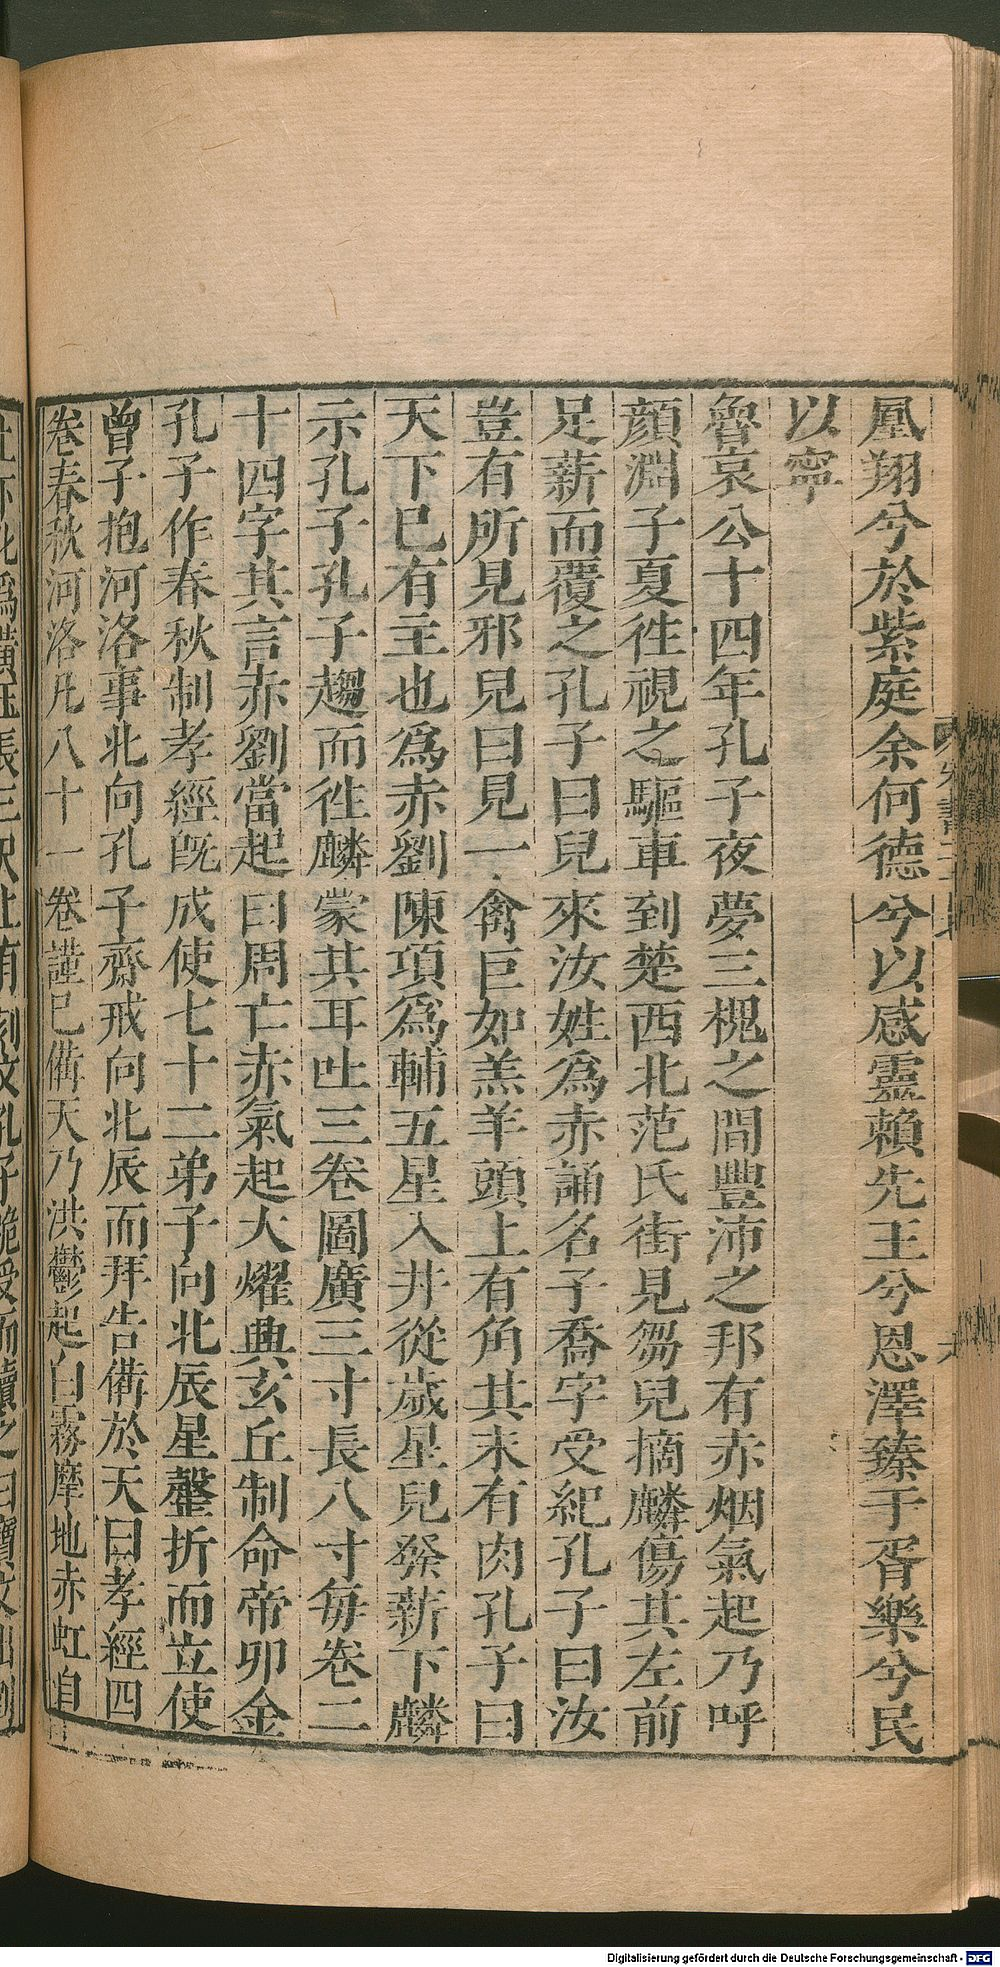 凰翔兮於紫庭余何德兮以感靈賴先王兮恩澤臻于胥樂兮民
以寧
魯哀公十四年孔子夜夢三槐之間豐沛之邦有赤烟氣起乃呼
顏淵子夏徃視之驅車到楚西北范氏街見芻兒摘麟傷其左前
足薪而覆之孔子曰兒來汝姓為赤誦名子喬字受紀孔子曰汝
豈有所見邪兒曰見一禽巨如羔羊頭上有角其末有肉孔子曰
天下巳有主也為赤劉陳項為輔五星入井從歲星兒發薪下麟
示孔子孔子趨而徃麟蒙其耳吐三卷圖廣三寸長八寸每卷二
十四字其言赤劉當起曰周亡赤氣起大燿興玄丘制命帝卯金
孔子作春秋制孝經既成使七十二弟子向北辰星罄折而立使
曾子抱河洛事北向孔子齋戒向北辰而拜告備於天曰孝經四
卷春秋河洛凡八十一卷謹巳備天乃洪鬱起白霧摩地赤虹自
Digitalisierung gefördert durch die Deutsche Forschungsgemeinschaft - DFG